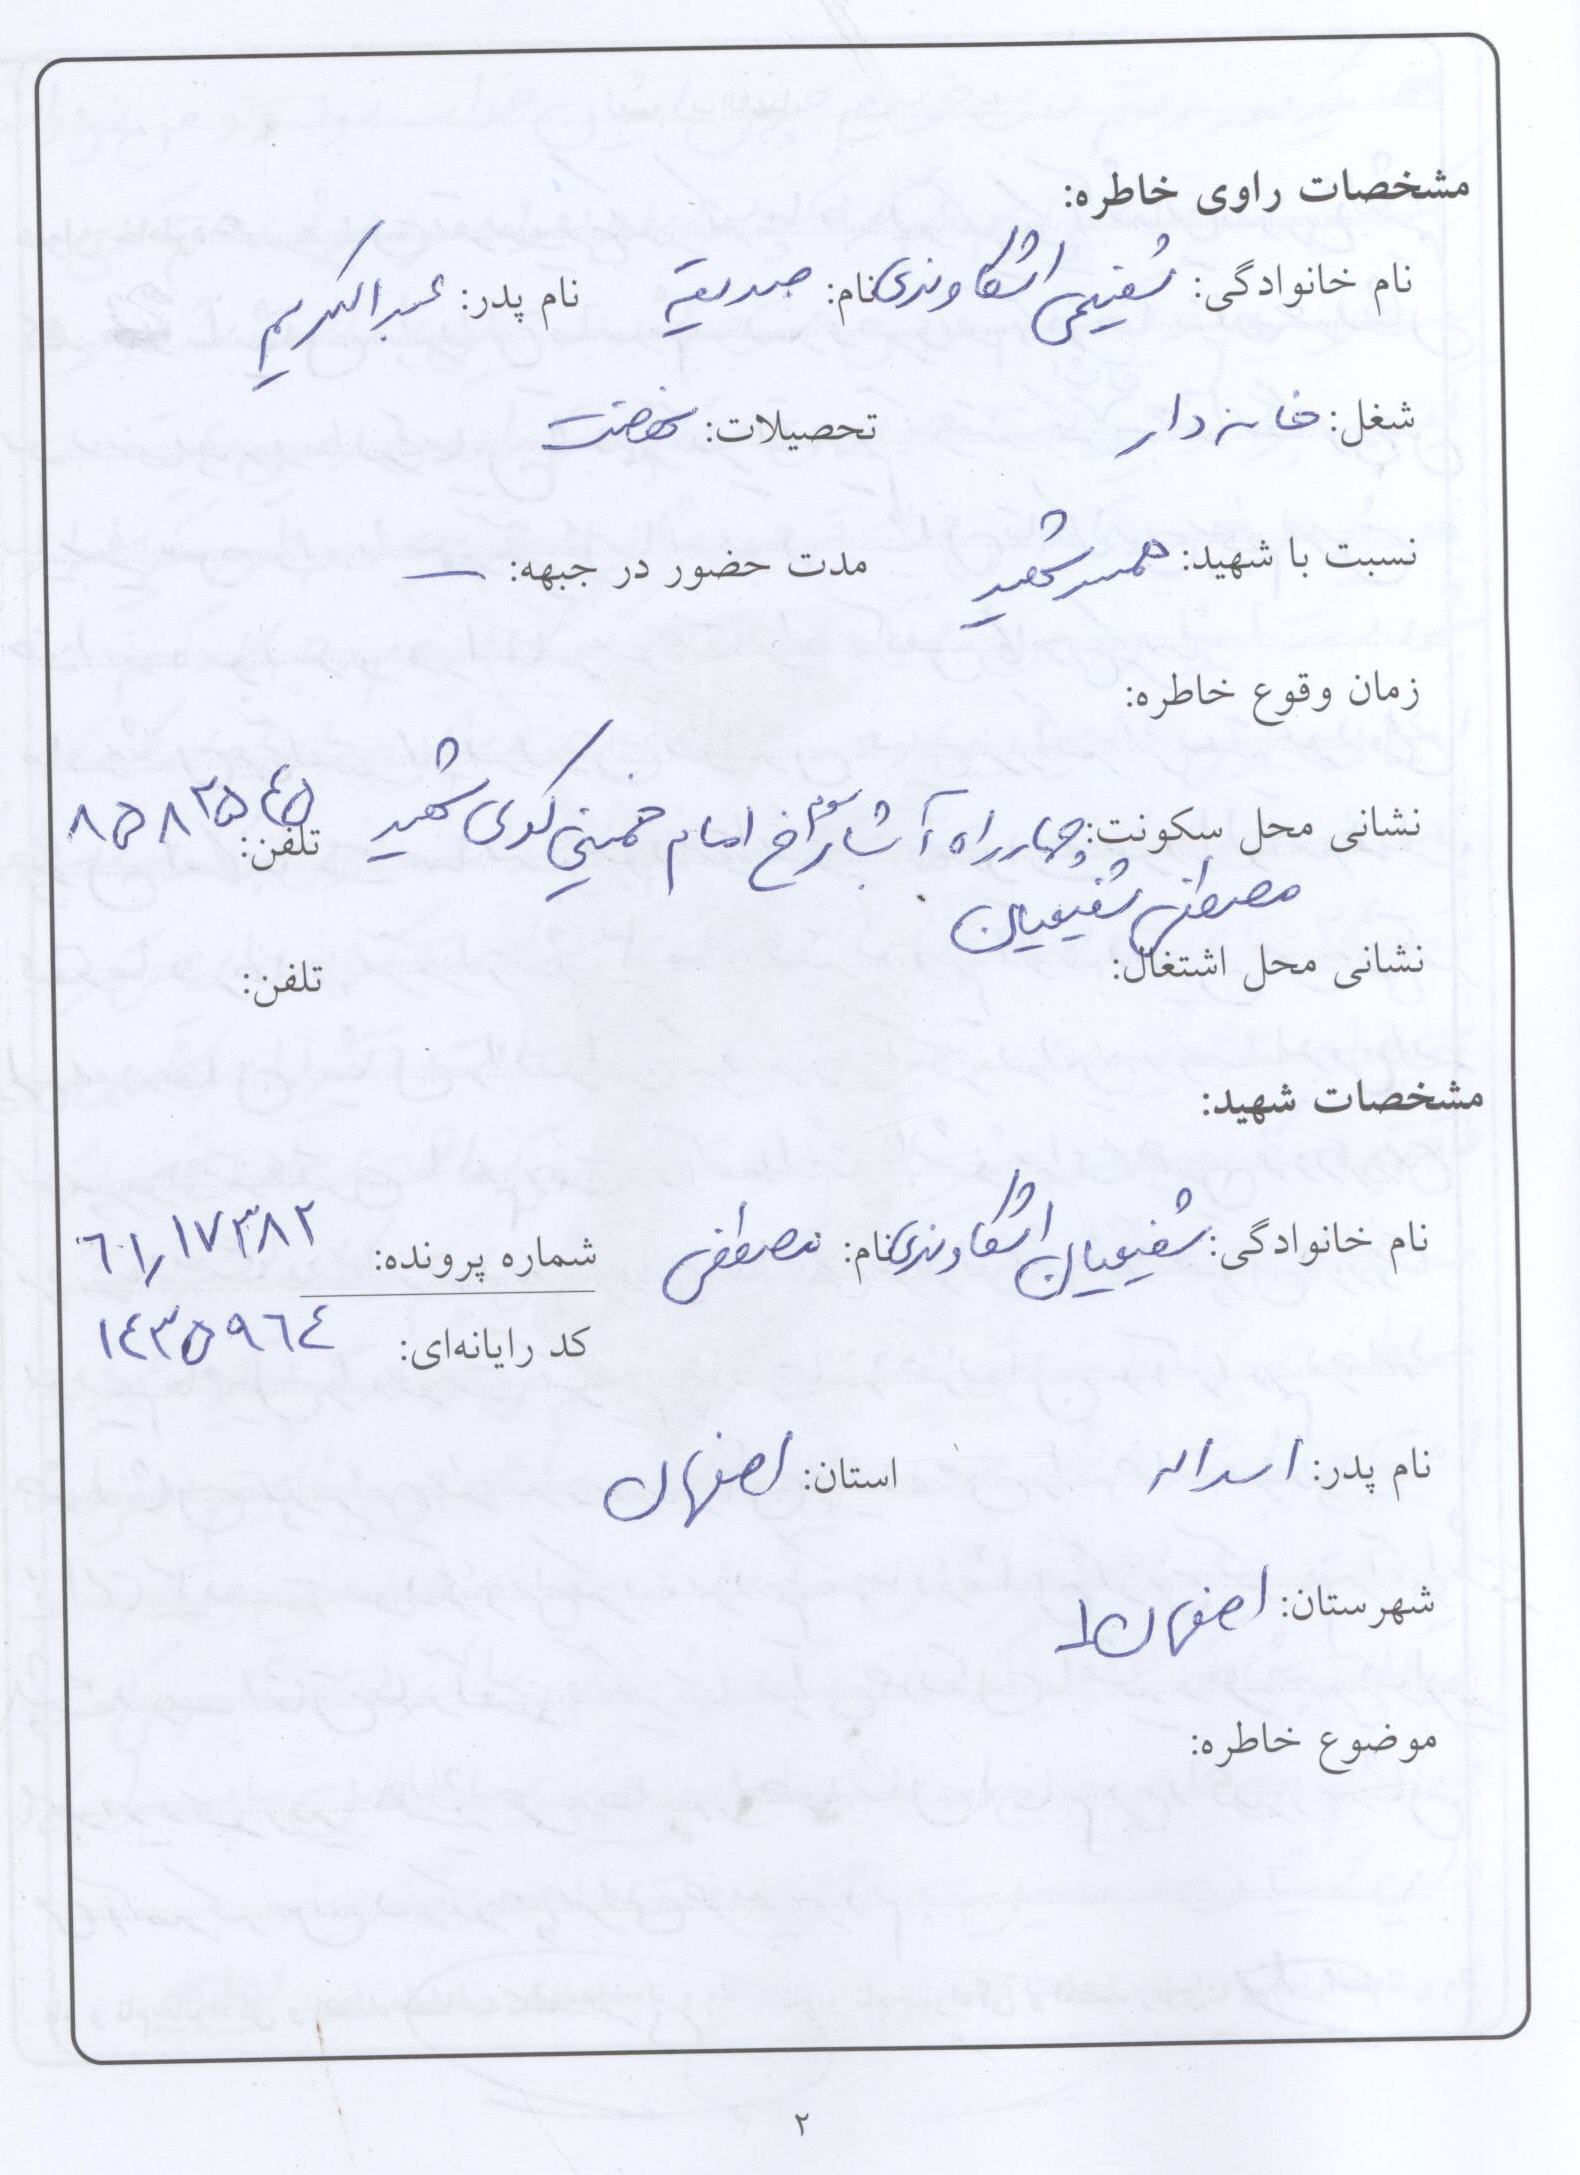 مشخصات راوی خاطره:
نام خانوادگی: شفیعی اشکاوندی نام: صدیقه نام پدر: عبدالکریم
شغل: خانه دار تحصیلات: نهضت
نسبت با شهید: همسر شهید مدت حضور در جبهه: ــ
زمان وقوع خاطره:
نشانی محل سکونت: چهارراه آبشار سوم خ امام خمینی کوی شهید تلفن:
مصطفی شفیعیان
نشانی محل اشتغال: تلفن:
مشخصات شهید:
نام خانوادگی: شفیعیان اشکاوندی نام: مصطفی شماره پرونده: ۶۱/۱۷۳۸۲
کد رایانه‌ای: ۱۴۳۵۹۶۴
نام پدر: اسداله استان: اصفهان
شهرستان: اصفهان ۱
موضوع خاطره:
۲